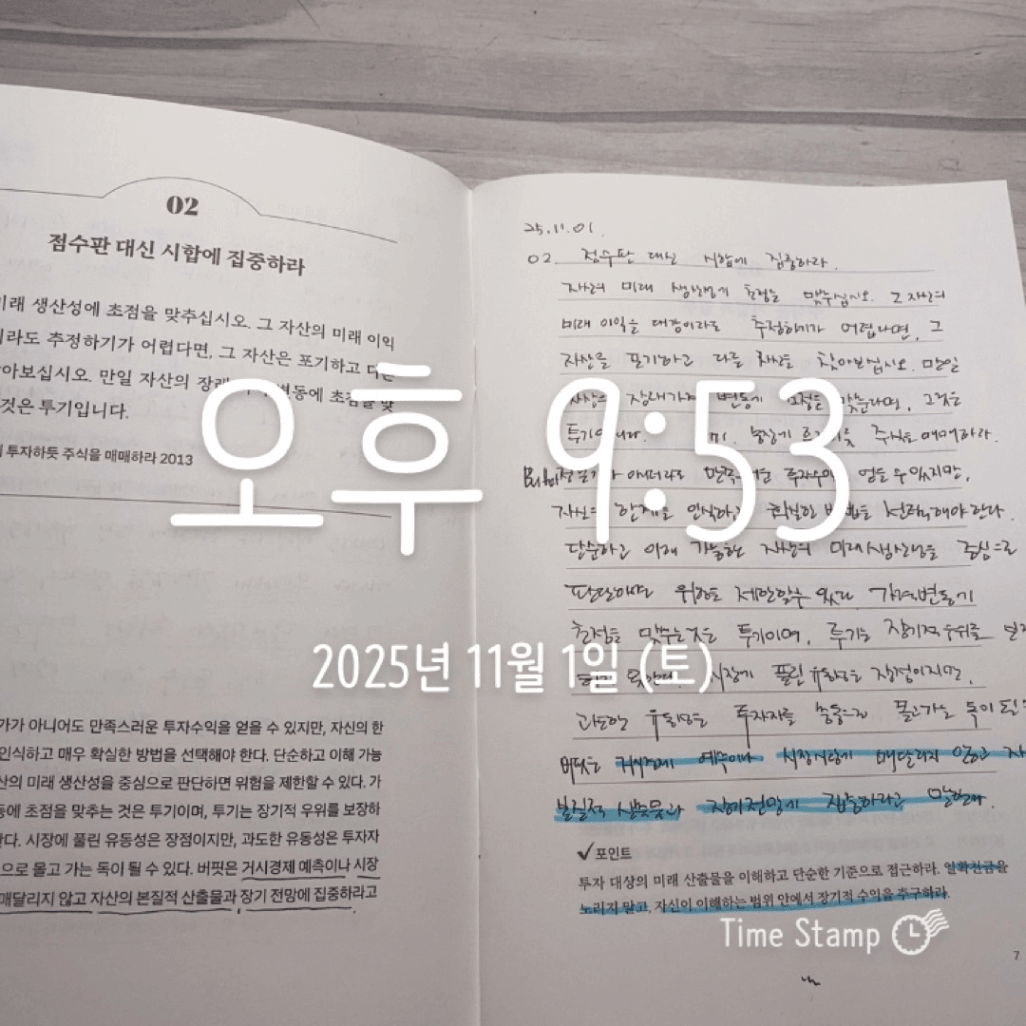 02
점수판 대신 시합에 집중하라
미래 생산성에 초점을 맞추십시오. 그 자산의 미래 이익
이라도 추정하기가 어렵다면, 그 자산은 포기하고 다른
아보십시오. 만일 자산의 장래 변동에 초점을 맞
것은 투기입니다.
투자하듯 주식을 매매하라 2013
가가 아니어도 만족스러운 투자수익을 얻을 수 있지만, 자신의 한
인식하고 매우 확실한 방법을 선택해야 한다. 단순하고 이해 가능
산의 미래 생산성을 중심으로 판단하면 위험을 제한할 수 있다. 가
동에 초점을 맞추는 것은 투기이며, 투기는 장기적 우위를 보장하
한다. 시장에 풀린 유동성은 장점이지만, 과도한 유동성은 투자자
으로 몰고 가는 독이 될 수 있다. 버핏은 거시경제 예측이나 시장
매달리지 않고 자산의 본질적 산출물과 장기 전망에 집중하라고
25.11.01.
02. 점수판 대신 시합에 집중하라.
자산의 미래 생산성에 초점을 맞추십시오. 그 자산의
미래 이익을 대강이라도 추정하기가 어렵다면, 그
자산을 포기하고 다른 자산을 찾아보십시오. 만일
자산의 장래가격 변동에 초점을 맞춘다면, 그것은
투기입니다. 주식을 매매하라.
투자수익 얻을 수 있지만,
자신의 한계를 인식하고 확실한 방법을 선택해야 한다.
단순하고 이해 가능한 자산의 미래 생산성을 중심으로
판단하면 위험을 제한할 수 있다. 가격변동에
초점을 맞추는 것은 투기이며, 투기는 장기적 우위를
시장에 풀린 유동성은 장점이지만,
과도한 유동성은 투자자를 몰고가는 독이 된
버핏은 거시경제 예측이나 시장 매달리지 않고
본질적 산출물과 장기전망에 집중하라고 말한다.
✓포인트
투자 대상의 미래 산출물을 이해하고 단순한 기준으로 접근하라. 일확천금을
노리지 말고, 자신이 이해하는 범위 안에서 장기적 수익을 추구하라.
7
오후 9:53
2025년 11월 1일 (토)
Time Stamp